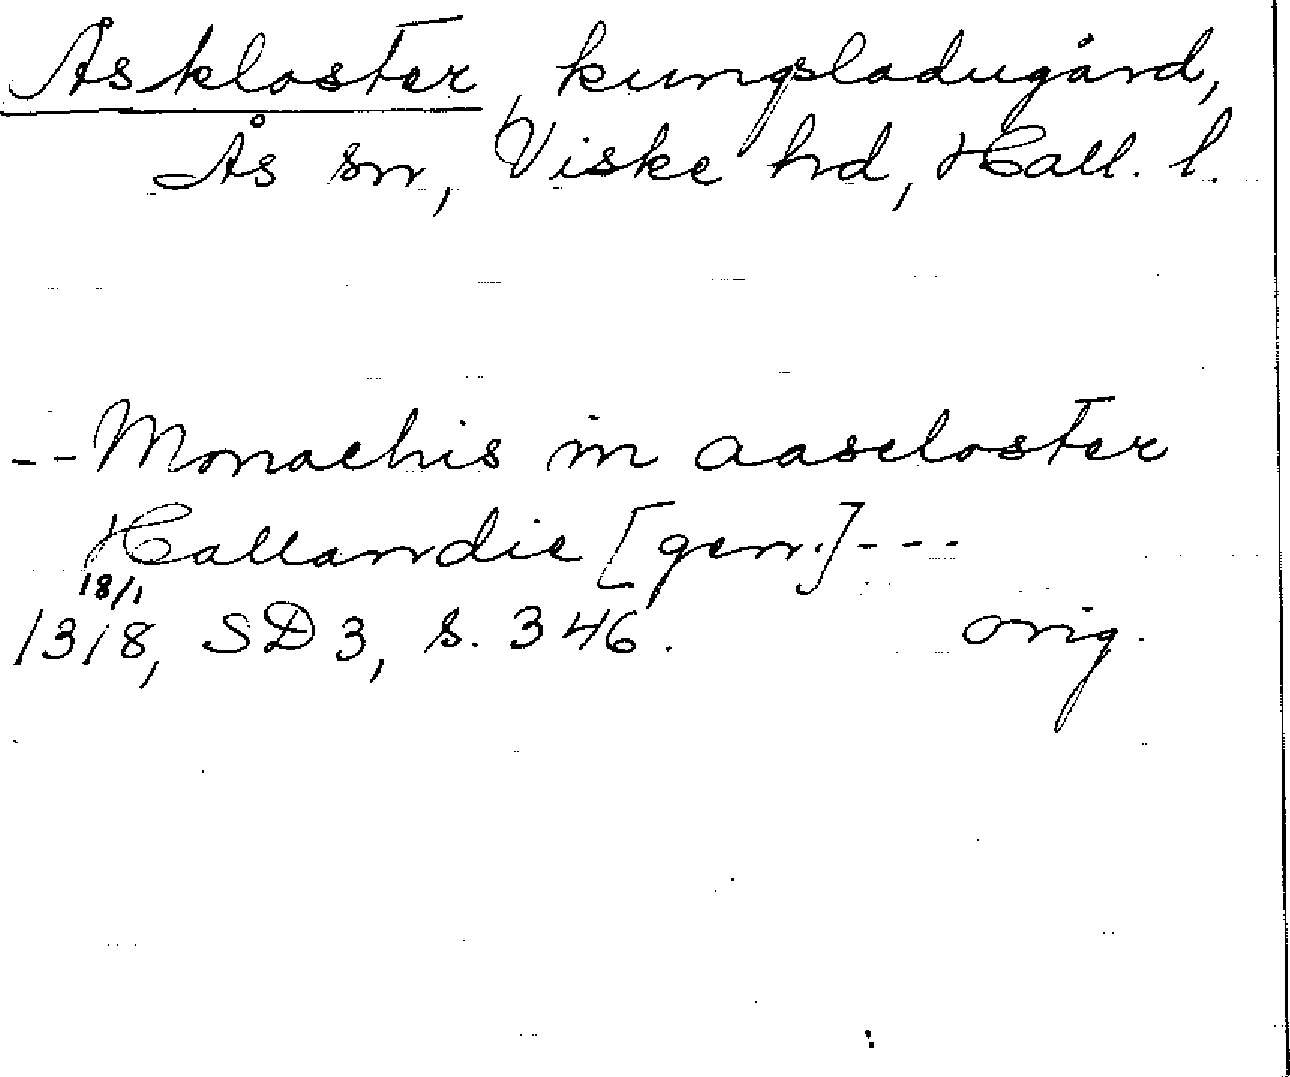 Åskloster, kungsladugård,
Ås sn, Viske hd, Hall. l.
-- Monachis in aascloster
Hallandie [gen.] ---
18/1
1318, SD 3, s. 346. orig.